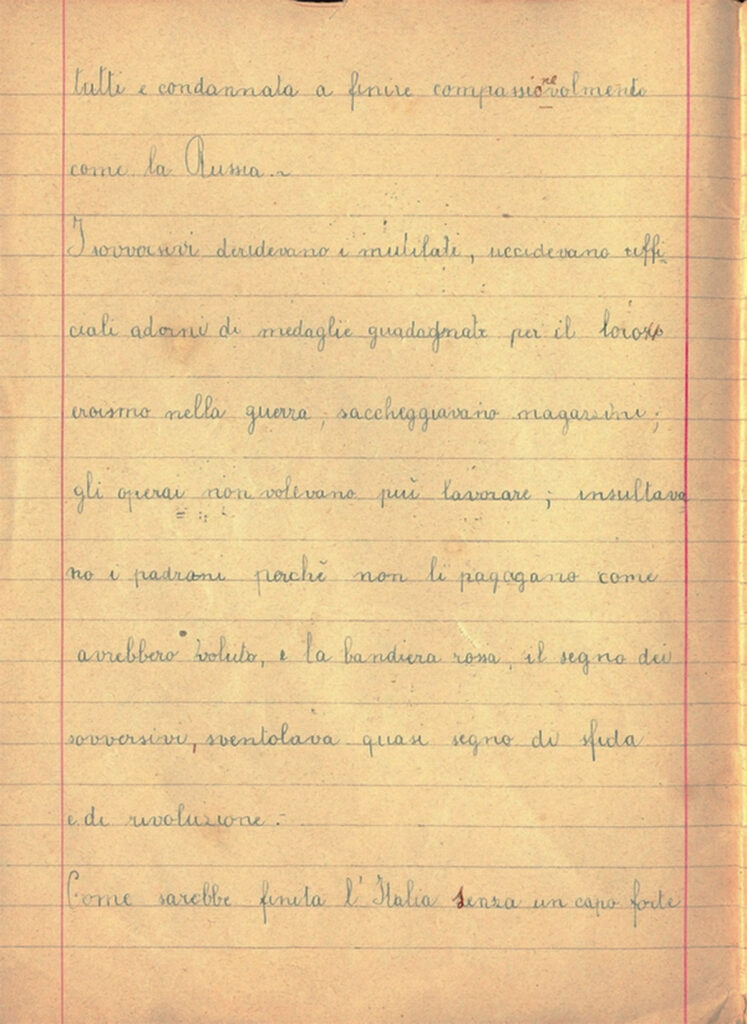 tutti e condannata a finire compassionevolmente
come la Russia.~
I sovversivi deridevano i mutilati, uccidevano uffi
ciali adorni di medaglie guadagnate per il loro
eroismo nella guerra, saccheggiavano magazzini;
gli operai non volevano più lavorare; insultava
no i padroni perchè non li pagagano come
avrebbero voluto, e la bandiera rossa, il segno dei
sovversivi, sventolava quasi segno di sfida
e di rivoluzione.-
Come sarebbe finita l'Italia senza un capo forte